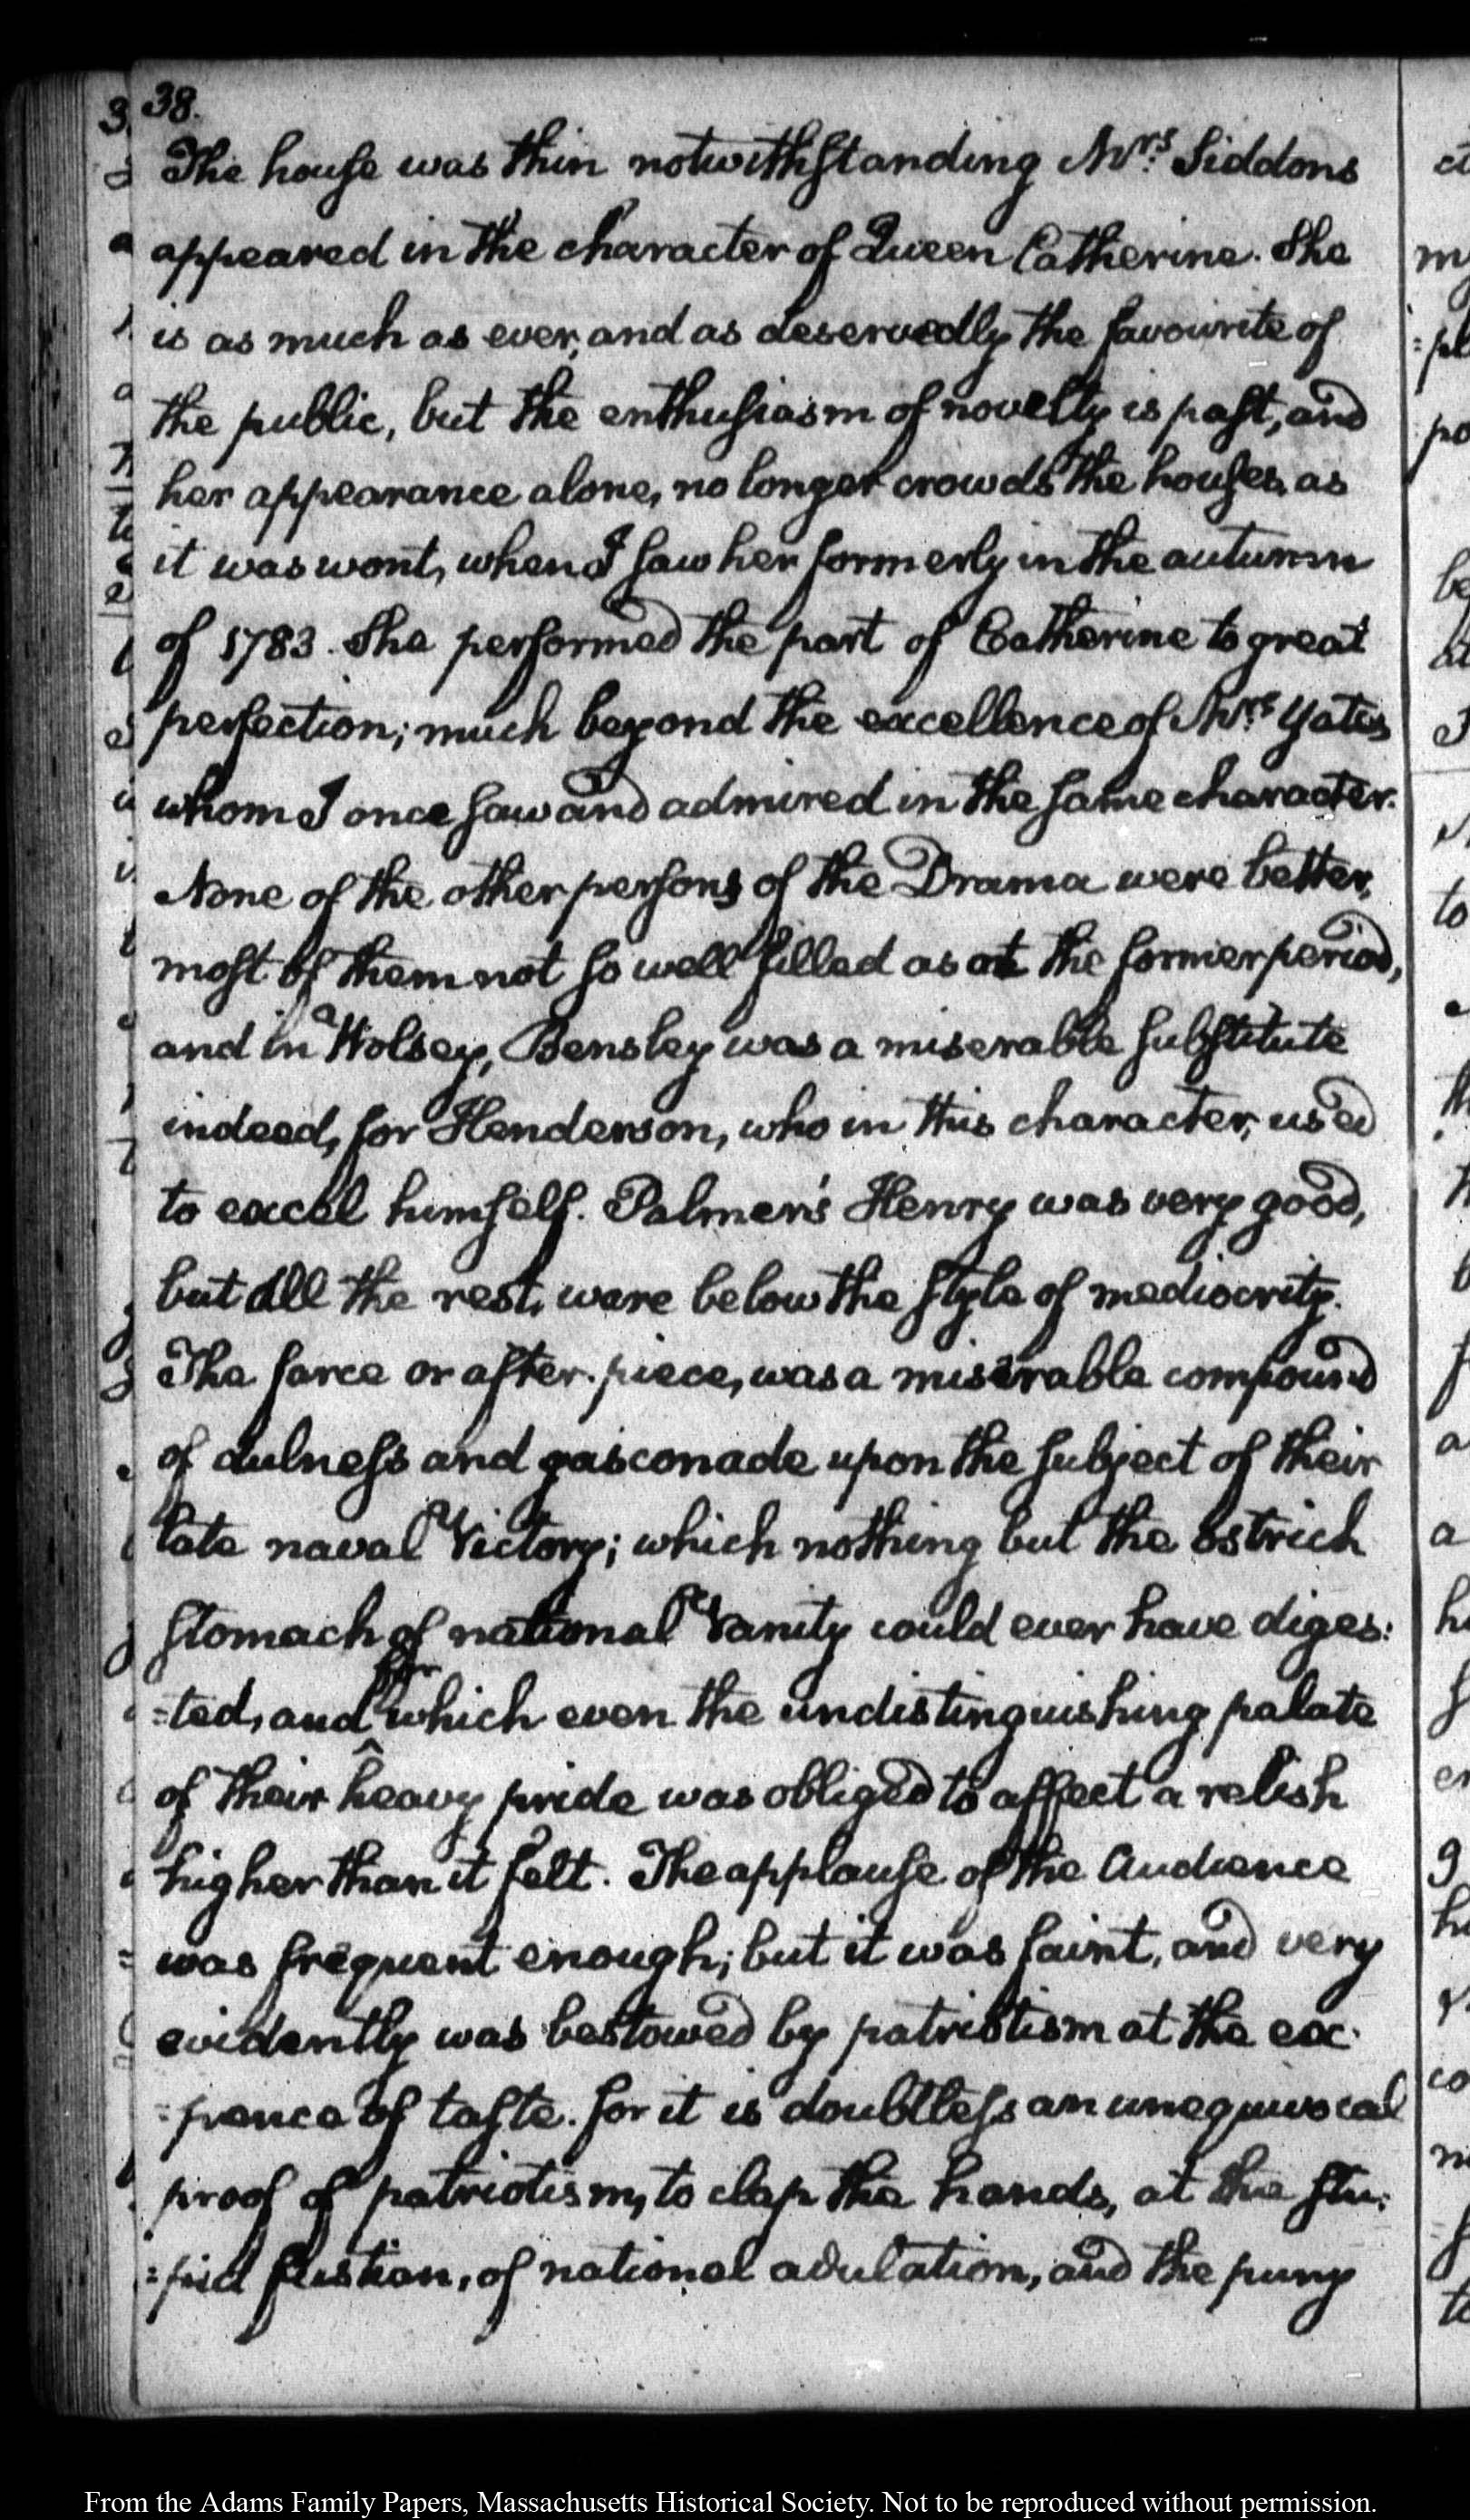 38.
The house was thin notwithstanding Mrs. Siddons
appeared in the character of Queen Catherine. She
is as much as ever, and as deservedly the favourite of
the public, but the enthusiasm of novelty is past, and
her appearance alone, no longer crowds the houses, as
it was wont, when I saw her formerly in the autumn
of 1783. She performed the part of Catherine to great
perfection; much beyond the excellence of Mrs. Yates
whom I once saw and admired in the same character.
None of the other persons of the Drama were better,
most of them not so well filled as at the former period,
and in Wolsey, Bensley was a miserable substitute
indeed, for Henderson, who in this character, used
to excel himself. Palmer's Henry was very good,
but all the rest, were below the style of mediocrity.
The farce or after-piece, was a miserable compound
of dulness and gasconade upon the subject of their
late naval Victory; which nothing but the ostrich
stomach of national Vanity could ever have diges:
=ted, and for which even the undistinguishing palate
of their heavy pride was obliged to affect a relish
higher than it felt. The applause of the Audience
was frequent enough; but it was faint, and very
evidently was bestowed by patriotism at the ex:
=pence of taste. for it is doubtless an unequivocal
proof of patriotism, to clap the hands, at the stu:
=pid fustian, of national adulation, and the puny
From the Adams Family Papers, Massachusetts Historical Society. Not to be reproduced without permission.